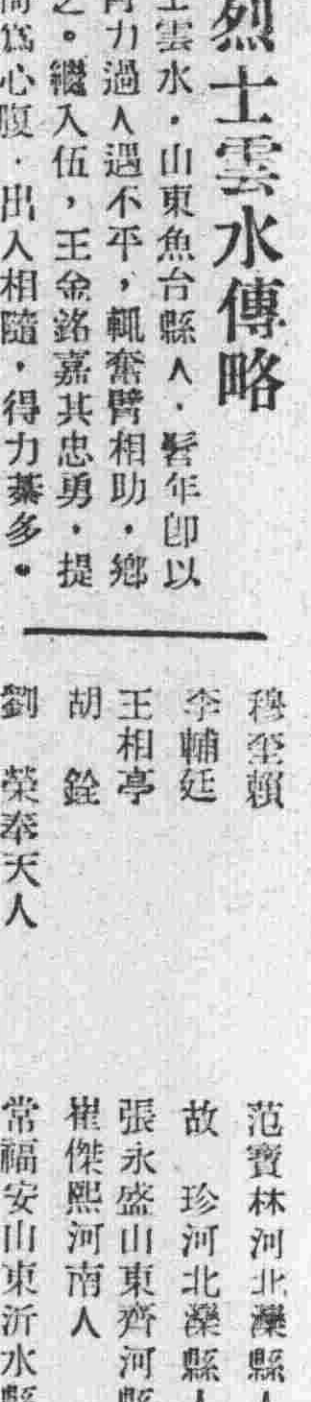 烈士雲水傳略
士雲水，山東魚台縣人，髫年卽以
力過人遇不平，輒奮臂相助，鄉
之。繼入伍，王金銘嘉其忠勇，提
爲心腹，出入相隨，得力綦多。
穆奎賴
李輔廷
王相亭
胡　銓
劉　榮奉天人
范寶林河北灤縣人
故　珍河北灤縣人
張永盛山東齊河縣
崔傑熙河南人
常福安山東沂水縣